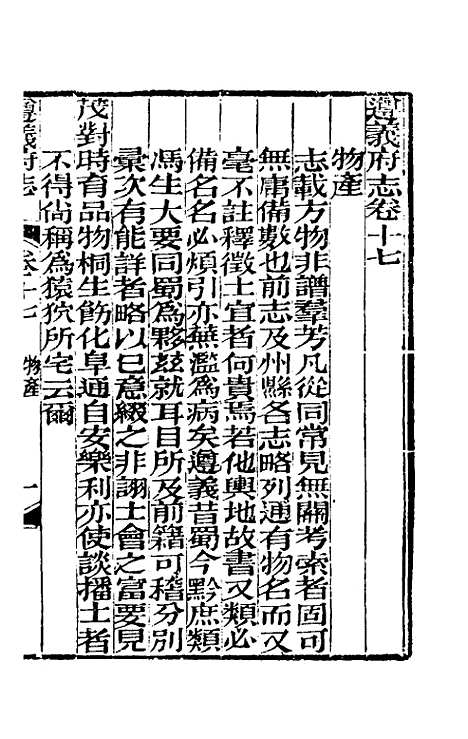 遵義府志卷十七
物產
志載方物非譜羣芳凡從同常見無關考索者固可
無庸備數也前志及州縣各志略列通有物名而又
毫不註釋徵土宜者何貴焉若他輿地故書又類必
備名名必煩引亦蕪濫為病矣遵義昔蜀今黔庶類
馮生大要同蜀為夥茲就耳目所及前籍可稽分別
彙次有能詳者略以已意綴之非詡土會之富要見
茂對時育品物桐生飭化阜通自安樂利亦使談播土者
不得尚稱為猿狖所宅云爾
遵義府志
卷十七
物產
一